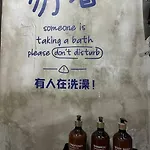 勿擾
someone is
taking a bath
please don't disturb
有人在洗澡！